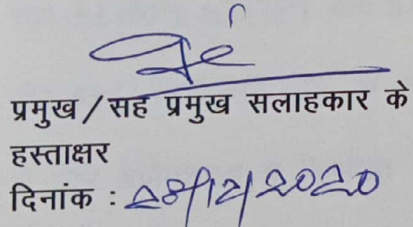 प्रमुख/सह प्रमुख सलाहकार के
हस्ताक्षर
दिनांक : 28/12/2020